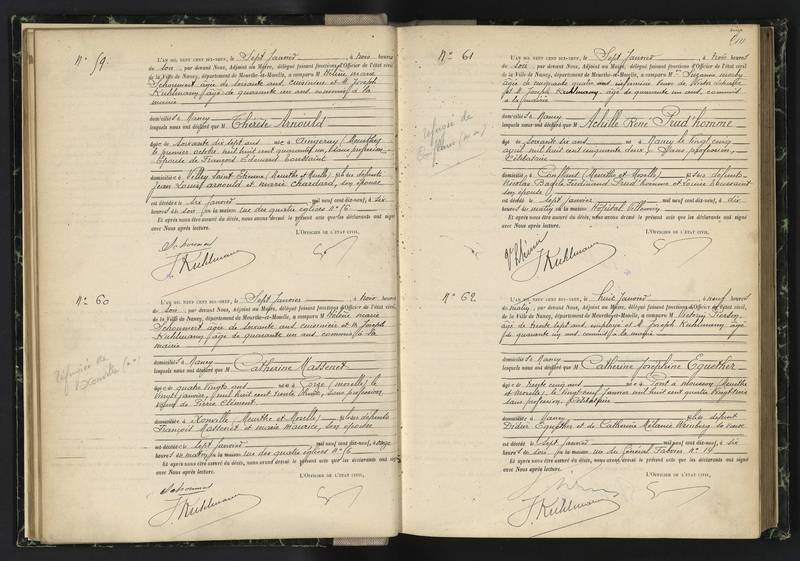 N° 59.
L'AN MIL NEUF CENT DIX-NEUF, le Sept Janvier, à trois heures
du soir, par devant Nous, Adjoint au Maire, délégué faisant fonctions d'Officier de l'état civil
de la Ville de Nancy, département de Meurthe-et-Moselle, a comparu M Hélène Marie
Schoumert âgée de soixante ans, cuisinière et M Joseph
Kuhlmann, âgé de quarante un ans, commis à la
mairie
domiciliés à Nancy
lesquels nous ont déclaré que M Thérèse Arnould
âgée de soixante dix sept ans née à (Meurthe)
le premier octobre mil huit cent quarante un, sans profession
épouse de François Edouard Toussaint
domiciliée à Villey Saint Etienne (Meurthe et Moselle) fille des défunts
Jean Louis Arnould et Marie Chardard, son épouse
est décédée le six janvier mil neuf cent dix-neuf, à six
heures du soir, en la maison rue des quatre églises n° 16
Et après nous être assuré du décès, nous avons dressé le présent acte que les déclarants ont signé
avec Nous après lecture.
L'OFFICIER DE L'ÉTAT CIVIL,
J. Kuhlmann
N° 60
L'AN MIL NEUF CENT DIX-NEUF, le Sept Janvier, à trois heures
du soir, par devant Nous, Adjoint au Maire, délégué faisant fonctions d'Officier de l'état civil
de la Ville de Nancy, département de Meurthe-et-Moselle, a comparu M Hélène Marie
Schoumert âgée de soixante ans, cuisinière et M Joseph
Kuhlmann, âgé de quarante un ans, commis à la
mairie
Réfugiée de
Xonville
domiciliés à Nancy
lesquels nous ont déclaré que M Catherine Massenet
âgée de quatre vingts ans née à Gorze (Moselle) le
vingt janvier mil huit cent trente huit, sans profession
veuve de Pierre Clément
domiciliée à Xonville (Meurthe et Moselle) fille des défunts
François Massenet et Marie Maurice, son épouse
est décédée le sept janvier mil neuf cent dix-neuf, à onze
heures du matin, en la maison rue des quatre églises n° 16
Et après nous être assuré du décès, nous avons dressé le présent acte que les déclarants ont signé
avec Nous après lecture.
L'OFFICIER DE L'ÉTAT CIVIL,
J. Kuhlmann
N° 61
L'AN MIL NEUF CENT DIX-NEUF, le Sept Janvier, à trois heures
du soir, par devant Nous, Adjoint au Maire, délégué faisant fonctions d'Officier de l'état civil
de la Ville de Nancy, département de Meurthe-et-Moselle, a comparu M Suzanne
âgée de cinquante quatre ans
et M Joseph Kuhlmann, âgé de quarante un ans, commis
à la mairie
Réfugié de
Conflans (M M)
domiciliés à Nancy
lesquels nous ont déclaré que M Achille René Prud'homme
âgé de soixante six ans né à Nancy le vingt cinq
août mil huit cent cinquante deux, sans profession,
célibataire
domicilié à Conflans (Meurthe et Moselle) fils des défunts
Nicolas Basile Ferdinand Prud'homme et Louise Toussaint
son épouse
est décédé le sept janvier mil neuf cent dix-neuf, à dix
heures du matin, en la maison Hôpital Villemin
Et après nous être assuré du décès, nous avons dressé le présent acte que les déclarants ont signé
avec Nous après lecture.
L'OFFICIER DE L'ÉTAT CIVIL,
J. Kuhlmann
N° 62
L'AN MIL NEUF CENT DIX-NEUF, le huit Janvier, à neuf heures
du matin, par devant Nous, Adjoint au Maire, délégué faisant fonctions d'Officier de l'état civil
de la Ville de Nancy, département de Meurthe-et-Moselle, a comparu M Victorin
âgé de trente sept ans, employé et M Joseph Kuhlmann, âgé
de quarante un ans, commis à la mairie
domiciliés à Nancy
lesquels nous ont déclaré que M Catherine Joséphine Eguether
âgée de trente cinq ans née à Pont à Mousson (Meurthe
et Moselle), le vingt neuf janvier mil huit cent quatre vingt trois
sans profession, célibataire
domiciliée à Nancy fille de défunt
Didier Eguether et de Catherine Mélanie Weinberg, sa veuve
est décédée le sept janvier mil neuf cent dix-neuf, à six
heures du soir, en la maison rue du Général Fabvier n° 14
Et après nous être assuré du décès, nous avons dressé le présent acte que les déclarants ont signé
avec Nous après lecture.
L'OFFICIER DE L'ÉTAT CIVIL,
J. Kuhlmann